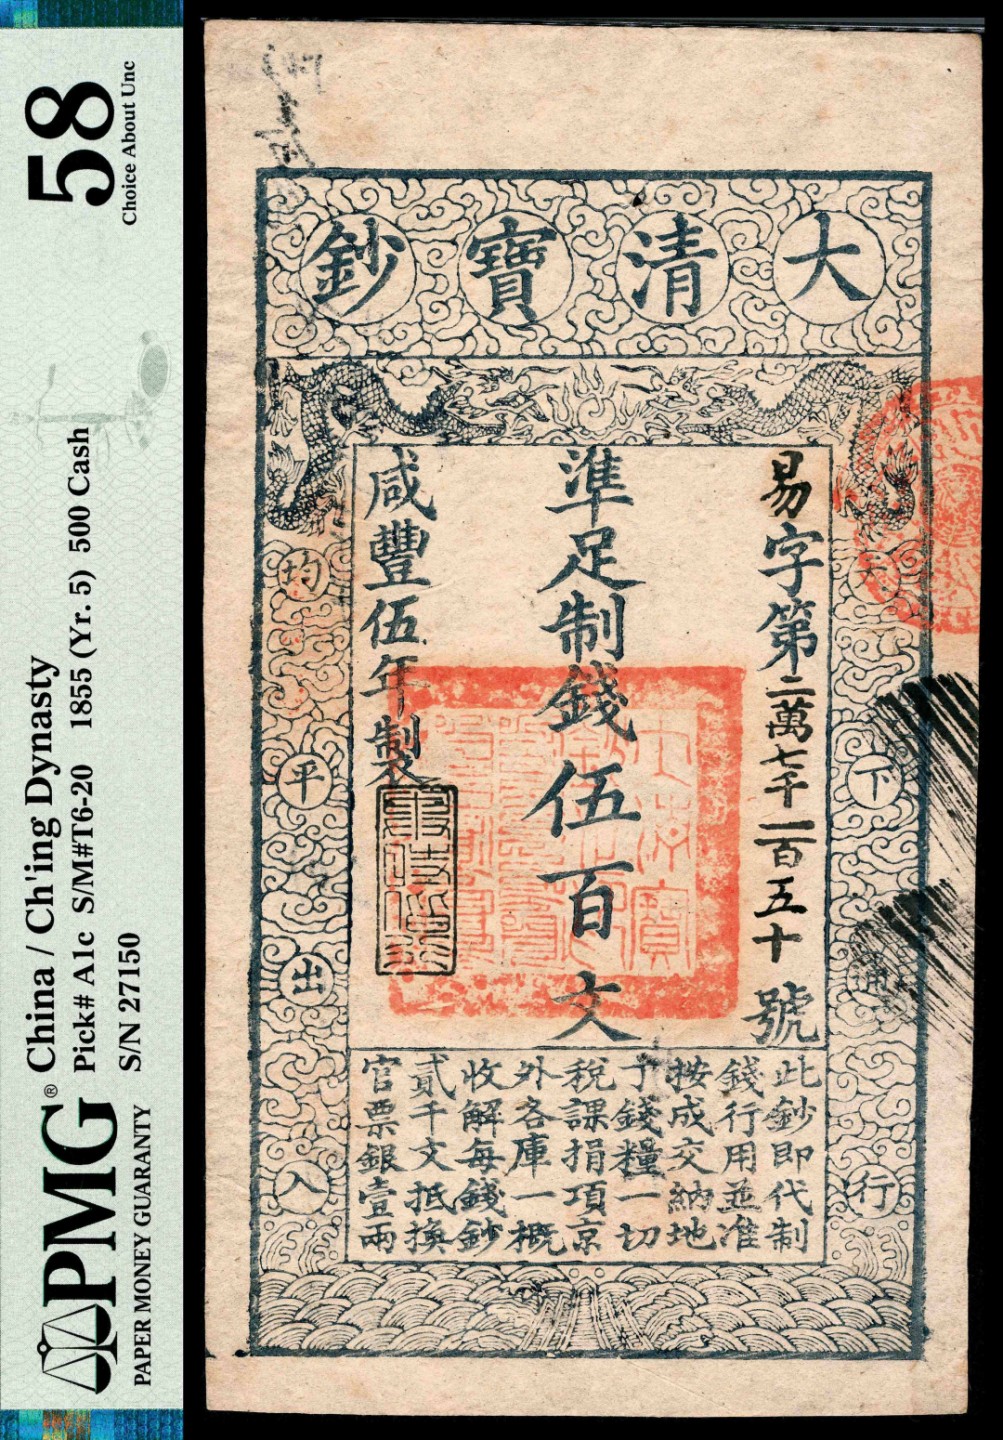 PMG® PAPER MONEY GUARANTY
China / Ch'ing Dynasty
Pick# A1c S/M#T6-20 1855 (Yr. 5) 500 Cash
S/N 27150
58
Choice About Unc
大清寶鈔
天下通行
均平出入
易字第二萬七千一百五十號
準足制錢伍百文
咸豐伍年製
此鈔即代制
錢行用並准
按成交納地
丁錢糧一切
稅課捐項京
外各庫一概
收解每錢鈔
貳千文抵換
官票銀壹兩
大清寶